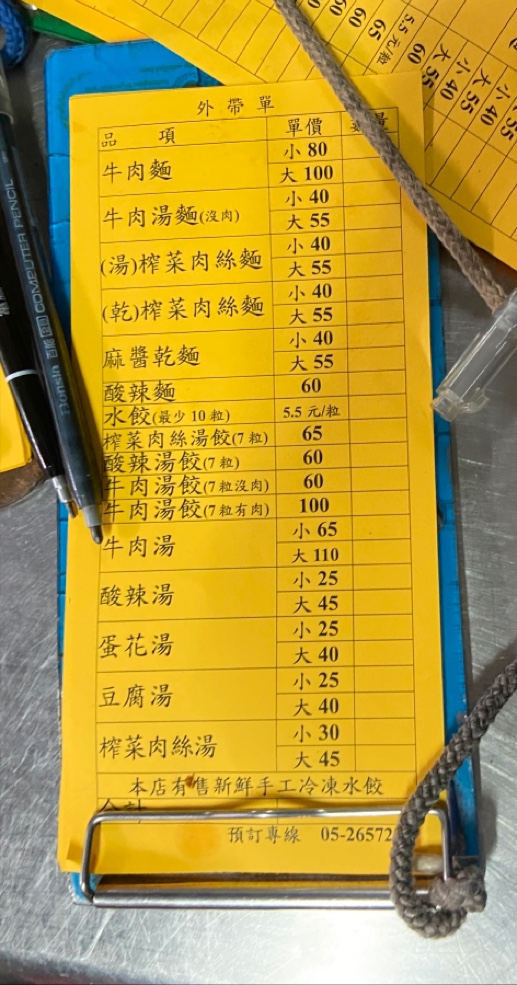 外帶單
品 項 單價
牛肉麵 小 80
大 100
牛肉湯麵(沒肉) 小 40
大 55
(湯)榨菜肉絲麵 小 40
大 55
(乾)榨菜肉絲麵 小 40
大 55
麻醬乾麵 小 40
大 55
酸辣麵 60
水餃(最少 10 粒) 5.5 元/粒
榨菜肉絲湯餃(7 粒) 65
酸辣湯餃(7 粒) 60
牛肉湯餃(7 粒沒肉) 60
牛肉湯餃(7 粒有肉) 100
牛肉湯 小 65
大 110
酸辣湯 小 25
大 45
蛋花湯 小 25
大 40
豆腐湯 小 25
大 40
榨菜肉絲湯 小 30
大 45
本店有售新鮮手工冷凍水餃
合計
預訂專線 05-26572
COMPUTER PENCIL
小 40
大 55
小 40
大 55
小 40
大 55
60
5.5 元/粒
65
60
60